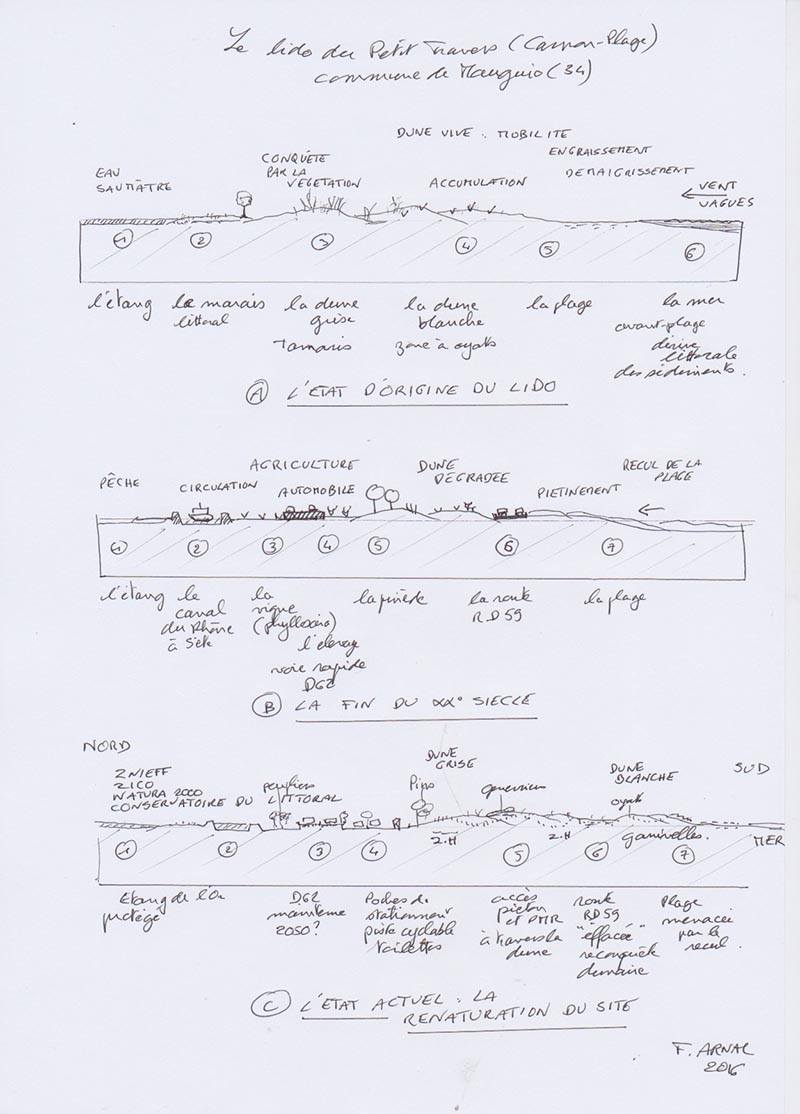 Le lido du Petit Travers (Carnon-Plage)
commune de Mauguio (34)
DUNE VIVE : MOBILITE
EAU SAUMÂTRE
CONQUÊTE PAR LA VÉGÉTATION
ACCUMULATION
ENGRAISSEMENT
DEMAIGRISSEMENT
VENT
VAGUES
1 2 3 4 5 6
l'étang
le marais littoral
la dune grise
Tamaris
la dune blanche
zone à oyats
la plage
la mer
avant-plage
dérive littorale
des sédiments.
A L'ETAT D'ORIGINE DU LIDO
PÊCHE
CIRCULATION
AGRICULTURE
AUTOMOBILE
DUNE DÉGRADÉE
PIETINEMENT
RECUL DE LA PLAGE
1 2 3 4 5 6 7
l'étang
le canal du Rhône à Sète
la vigne (phylloxéra)
l'élevage
voie rapide
D62
la pinède
la route
RD 59
la plage
B LA FIN DU XX° SIECLE
NORD
ZNIEFF
ZICO
NATURA 2000
CONSERVATOIRE DU LITTORAL
peupliers
Pins
DUNE GRISE
Z.H
Z.H
DUNE BLANCHE
oyats
ganivelles.
SUD
MER
1 2 3 4 5 6 7
Etang de l'Or
protégé
D62
maintenue
2050?
Poches de
stationnement
piste cyclable
toilettes
accès
piéton
et PMR
à travers la
dune
route
RD 59
"effacée"
reconquête
dunaire
Plage
menacée
par le
recul.
C L'ETAT ACTUEL : LA
RENATURATION DU SITE
F. ARNAL
2016